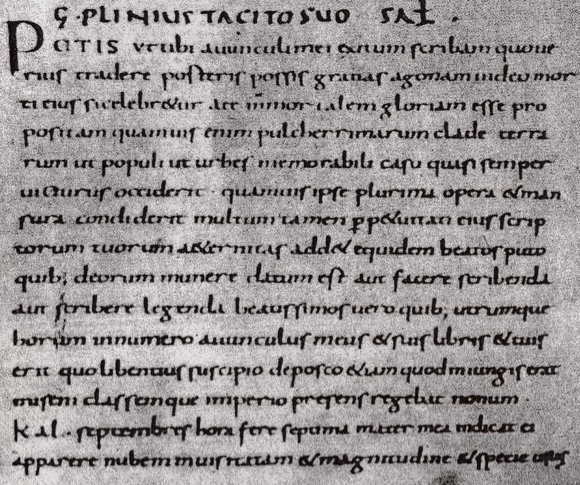 C·PLINIUS TACITO SUO SAL.
PETIS ut tibi avunculi mei exitum scribam quo ve
rius tradere posteris possis gratias ago nam video mor
ti eius si celebretur a te inmortalem gloriam esse pro
positam quamvis enim pulcherrimarum clade terra
rum ut populi ut urbes memorabili casu quasi semper
victurus occiderit · quamvis ipse plurima opera & man
sura condiderit multum tamen perp&uitati eius scrip
torum tuorum a&ernitas add& equidem beatos puto
quib; deorum munere datum est aut facere scribenda
aut scribere legenda beatissimos vero quib; utrumque
horum in numero avunculus meus & suis libris & tuis
erit quo libentius suscipio deposco &iam quod iniungis erat
miseni classemque imperio presens regebat nonum ·
kal · septembres hora fere septima mater mea indicat ei
apparere nubem inusitatam & magnitudine & specie usus